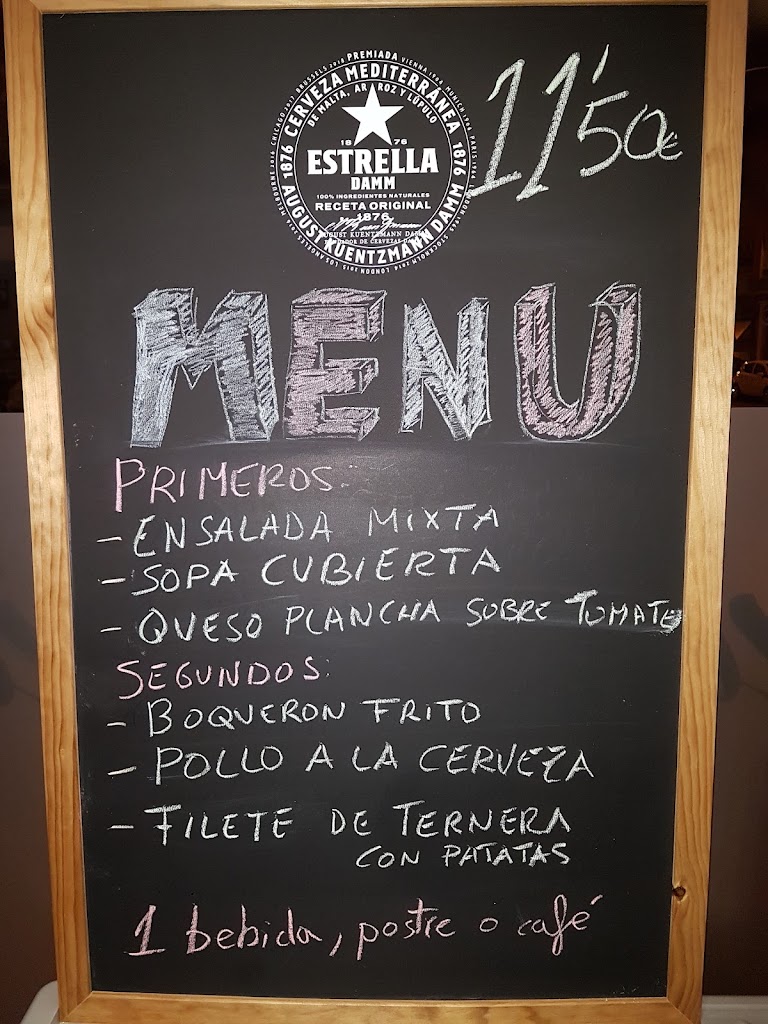 BRUSSELS 2018 PREMIADA VIENNA 1904 MUNICH 1906 PARIS 1964
1876 CERVEZA MEDITERRÁNEA 1876
DE MALTA, ARROZ Y LÚPULO
11'50€
1876
ESTRELLA
DAMM
100% INGREDIENTES NATURALES
RECETA ORIGINAL
1876
AUGUST KUENTZMANN DAMM
AUGUST KUENTZMANN DAMM
MENU
PRIMEROS:
- ENSALADA MIXTA
- SOPA CUBIERTA
- QUESO PLANCHA SOBRE TOMATE
SEGUNDOS:
- BOQUERON FRITO
- POLLO A LA CERVEZA
- FILETE DE TERNERA
CON PATATAS
1 bebida, postre o café